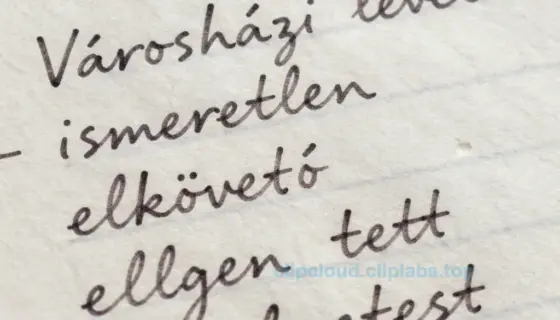 Városházi
- ismeretlen
elkövetó
ellgen tett